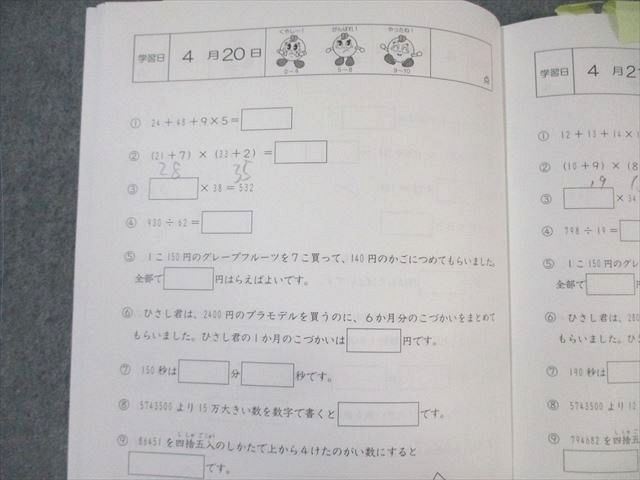 学習日 4月20日
くやし〜! がんばれ! やったね!
0〜4 5〜8 9〜10 点
① 24+48+9×5=
② (21+7)×(33+2)=
28 35
③ ×38=532
④ 930÷62=
⑤ 1こ150円のグレープフルーツを7こ買って、140円のかごにつめてもらいました。
全部で 円はらえばよいです。
⑥ ひさし君は、2400円のプラモデルを買うのに、6か月分のこづかいをまとめて
もらいました。ひさし君の1か月のこづかいは 円です。
⑦ 150秒は 分 秒です。
⑧ 5743500より15万大きい数を数字で書くと です。
⑨ 86451を四捨五入のしかたで上から4けたのがい数にすると
ししゃごにゅう
です。
学習日 4月2
① 12+13+14×
② (10+9)×(8
19
③ ×34
④ 798÷19=
⑤ 1こ150円のグレ
全部で
⑥ ひさし君は、280
もらいました。ひ
⑦ 190秒は
⑧ 5743500より10
⑨ 794682を四捨五